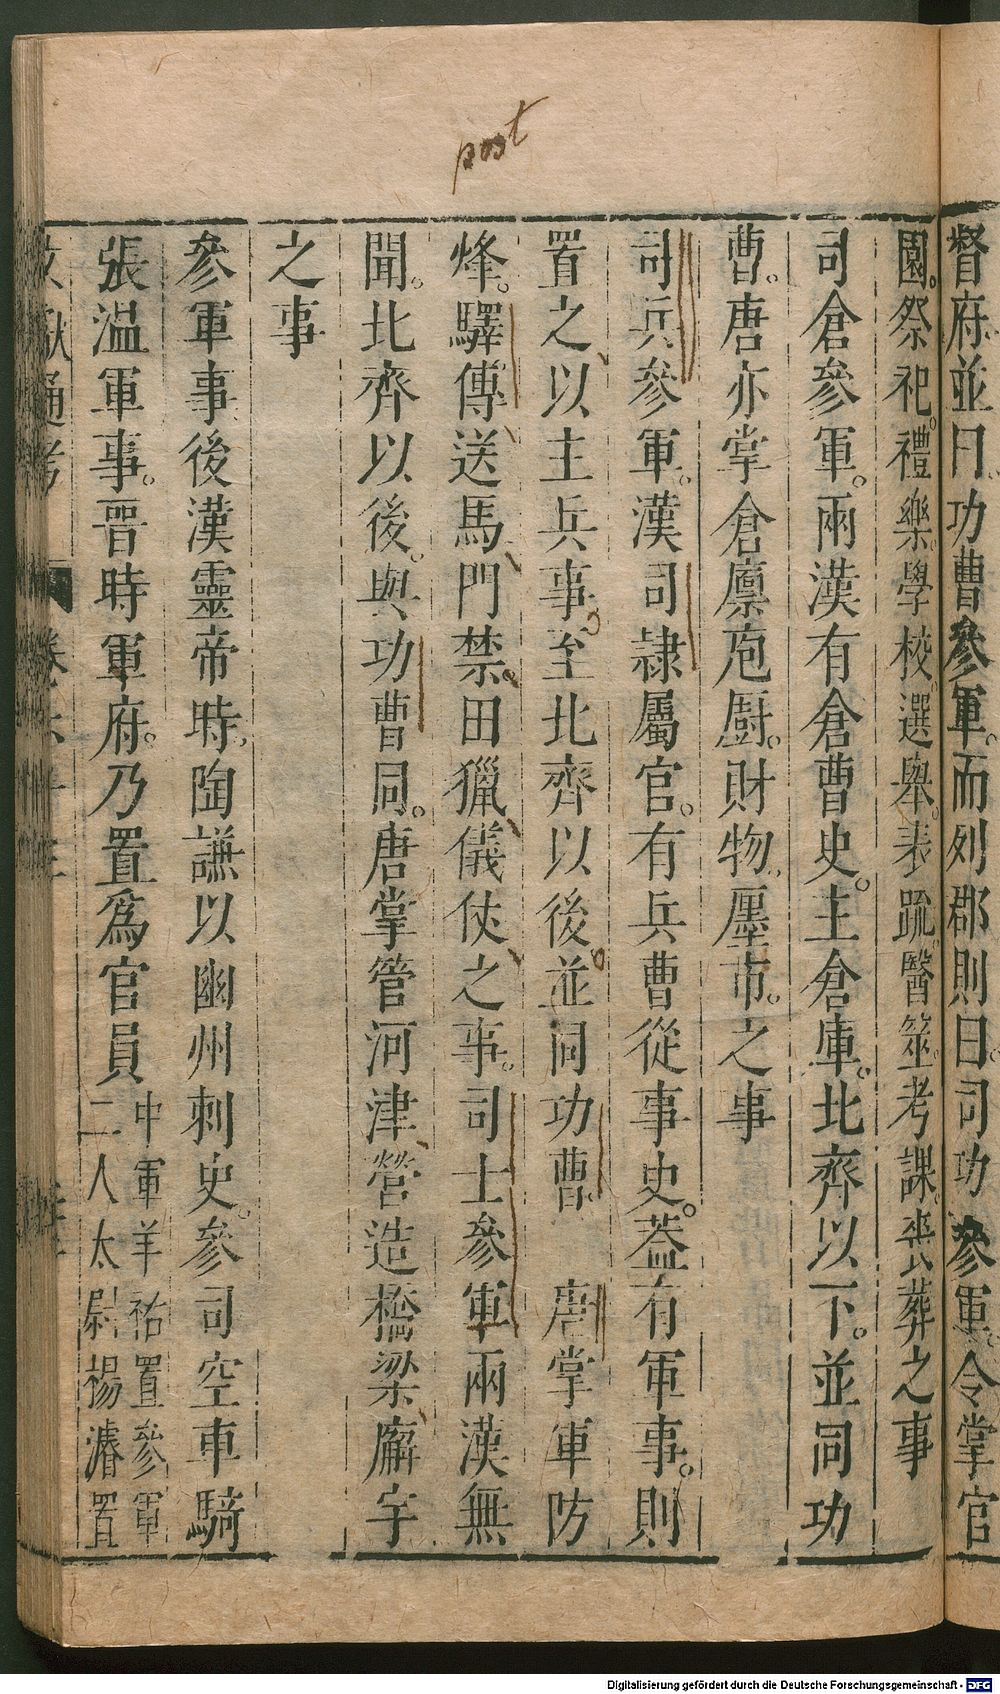 post
督府並曰功曹參軍而列郡則曰司功參軍令掌官
園祭祀禮樂學校選舉表䟽醫筮考課喪葬之事
司倉參軍兩漢有倉曹史主倉庫北齊以下並同功
曹唐亦掌倉廩庖厨財物廛市之事
司兵參軍漢司隷屬官有兵曹從事史葢有軍事則
置之以主兵事至北齊以後並同功曹 唐掌軍防
烽驛傳送馬門禁田獵儀仗之事司士參軍兩漢無
聞北齊以後與功曹同唐掌管河津營造橋梁廨宇
之事
參軍事後漢靈帝時陶謙以幽州刺史參司空車騎
張温軍事晉時軍府乃置爲官員
中軍羊祜置參軍
二人太尉楊濬置
通考
Digitalisierung gefördert durch die Deutsche Forschungsgemeinschaft - DFG